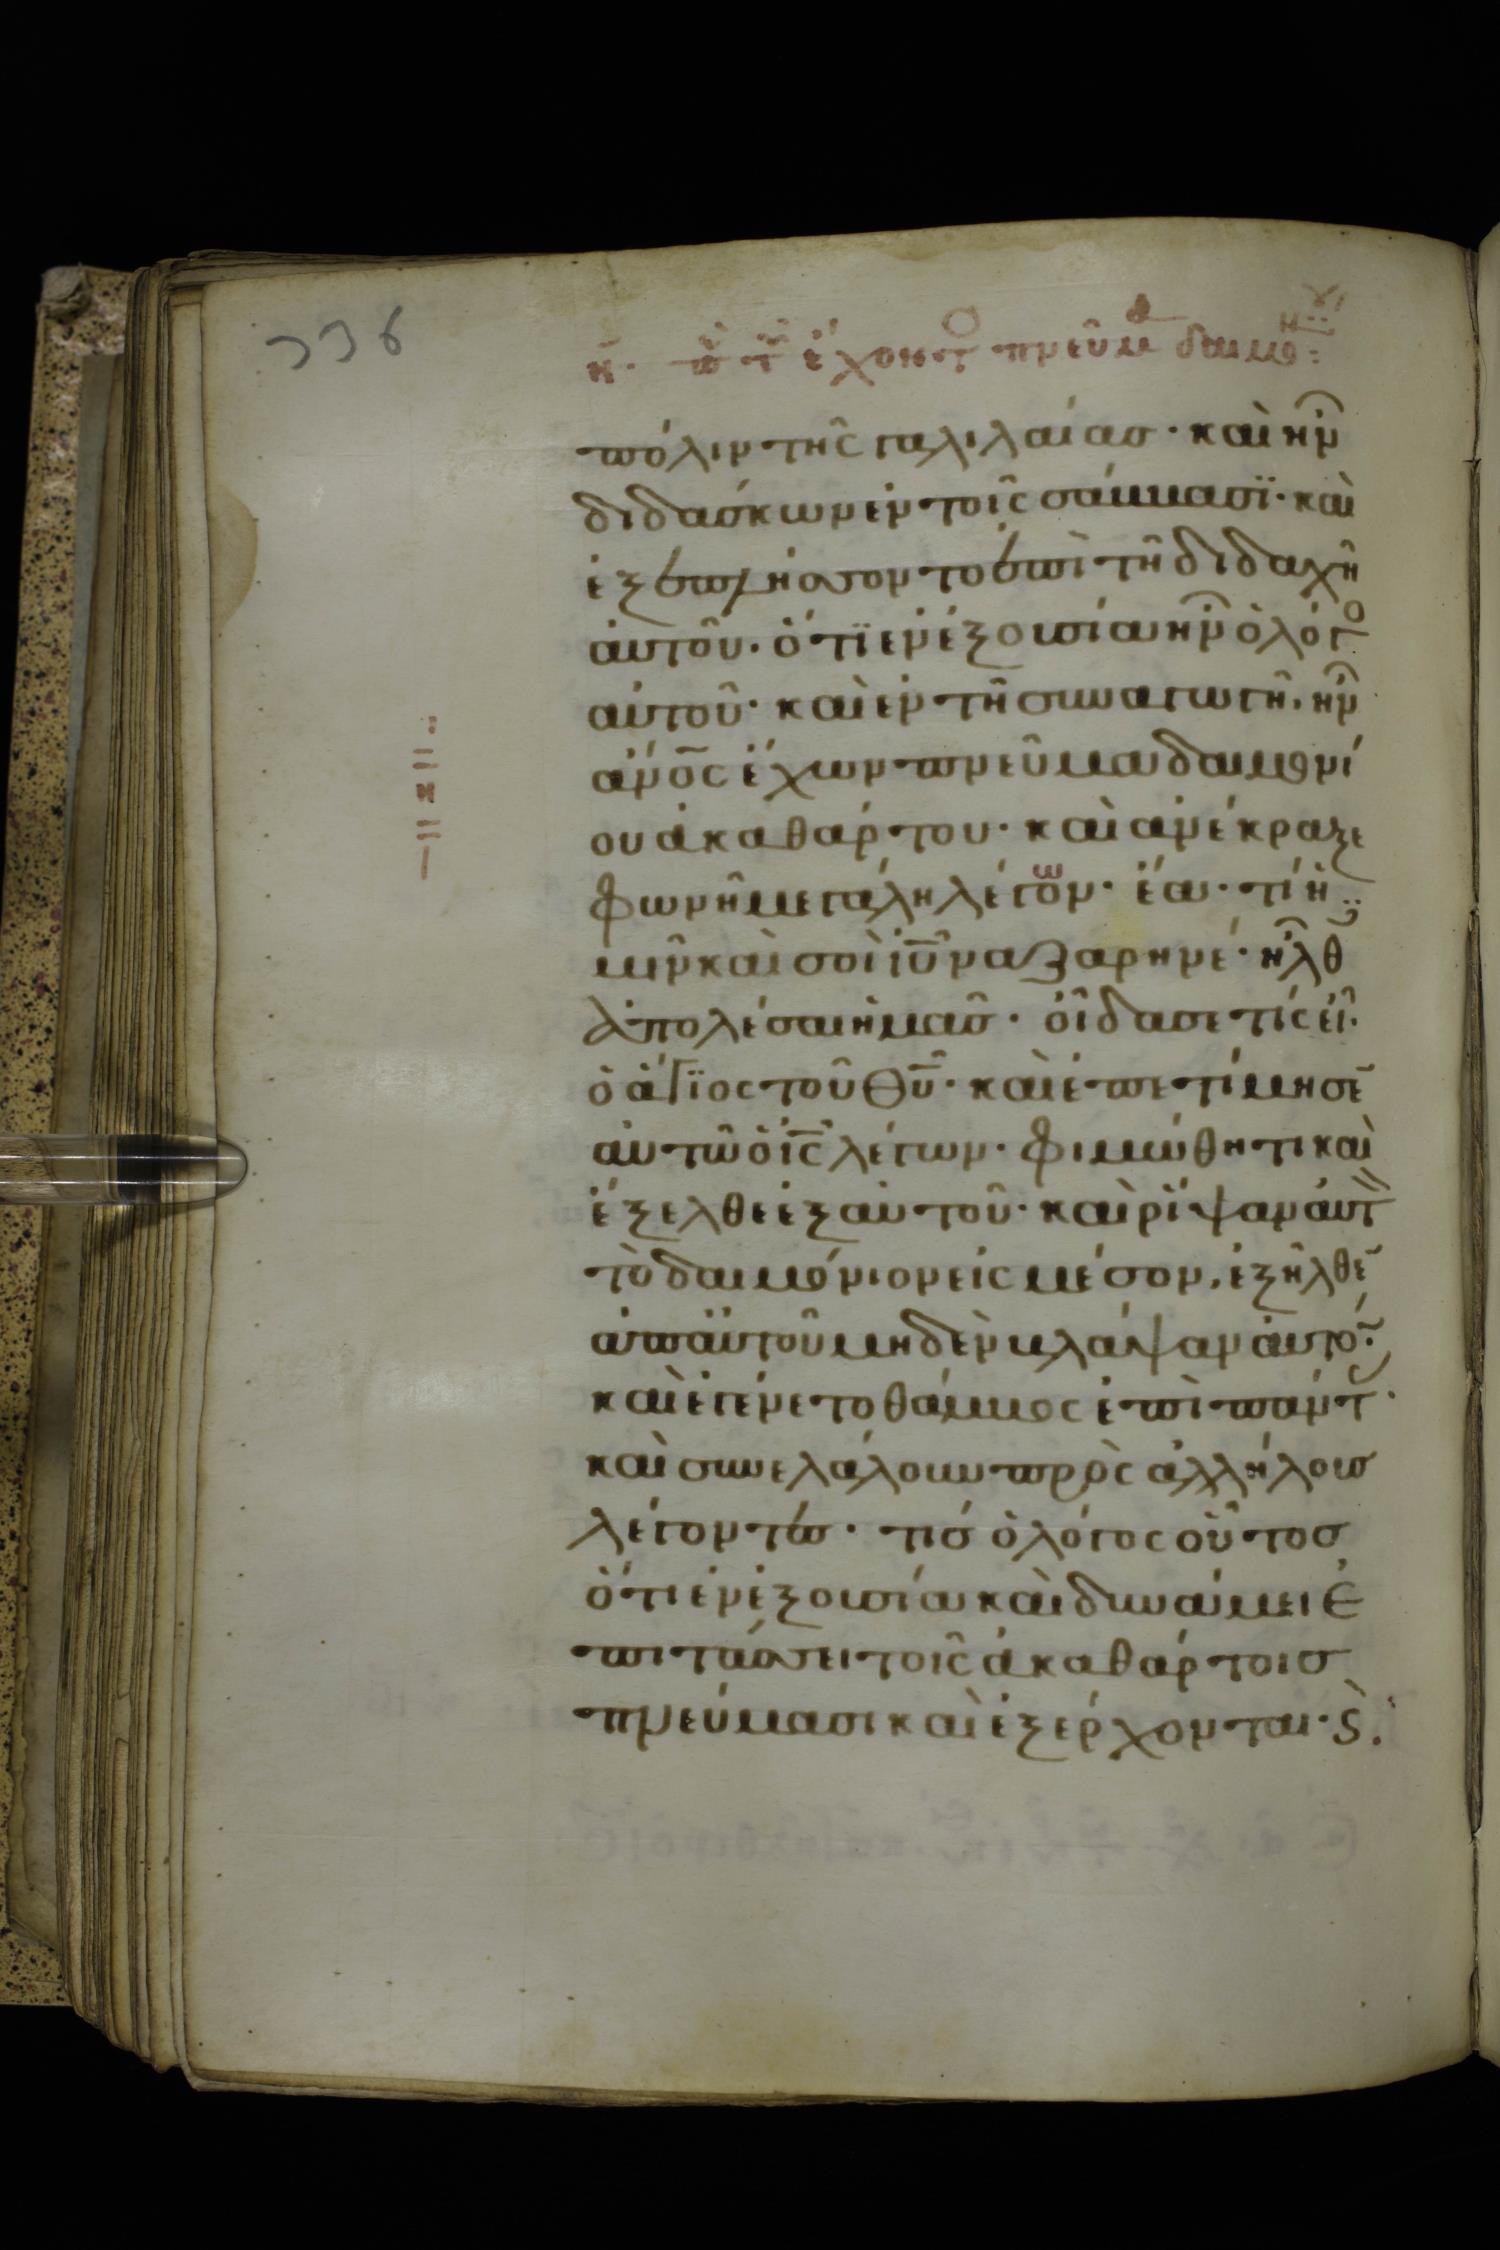 336
η. π τ ἔχοντ πνεῦμα δαιμο:
πόλιν τῆς γαλιλαίασ· καὶ ἦν
διδασκων ἐν τοῖς σάββασϊ· καὶ
ἐξεπλήσσοντο ἐπὶ τῆ διδαχῆ
ἀυτοῦ. ὅτϊ ἐν ἐξουσία ἦν ὁ λόγο
αὐτοῦ· καὶ ἐν τῆ συναγωγῆ. ἦν
ἀνο̅ς ἔχων πνεῦμα δαιμονί
ου ἀκαθάρτου· καὶ ἀνέκραξε
φωνῆ μεγάλη λέγον· ἔα· τί ἡ
ω
μῖν καὶ σοὶ ἰυ̅ ναζαρηνέ· ἦλθ
ἀπολέσαι ἡμᾶσ· οἶδα σε τίς εἶ.
ὁ ἅγϊος τοῦ θυ̅· καὶ ἐπετίμησε
ἀυτῶ ὁ ι̅ς λέγων· φιμώθητι καὶ
ἔξελθε ἐξ αὐτοῦ· καὶ ρίψαν ἀυτ
τὸ δαιμόνιον εἰς μέσον. ἐξῆλθε
ἀπ αὐτοῦ μηδὲν βλάψαν ἀυτο·
καὶ ἐγένετο θάμβος ἐπὶ πάντ·
καὶ συνελάλουν πρὸς ἀλλήλουσ
λέγοντεσ· τίσ ὁ λόγος οὗτοσ
ὅτι ἐν ἐξουσία καὶ δυνάμει ἐ
πιτάσσει τοῖς ἀκαθάρτοισ
πνεύμασι καὶ ἐξέρχονται· ϛ̀.